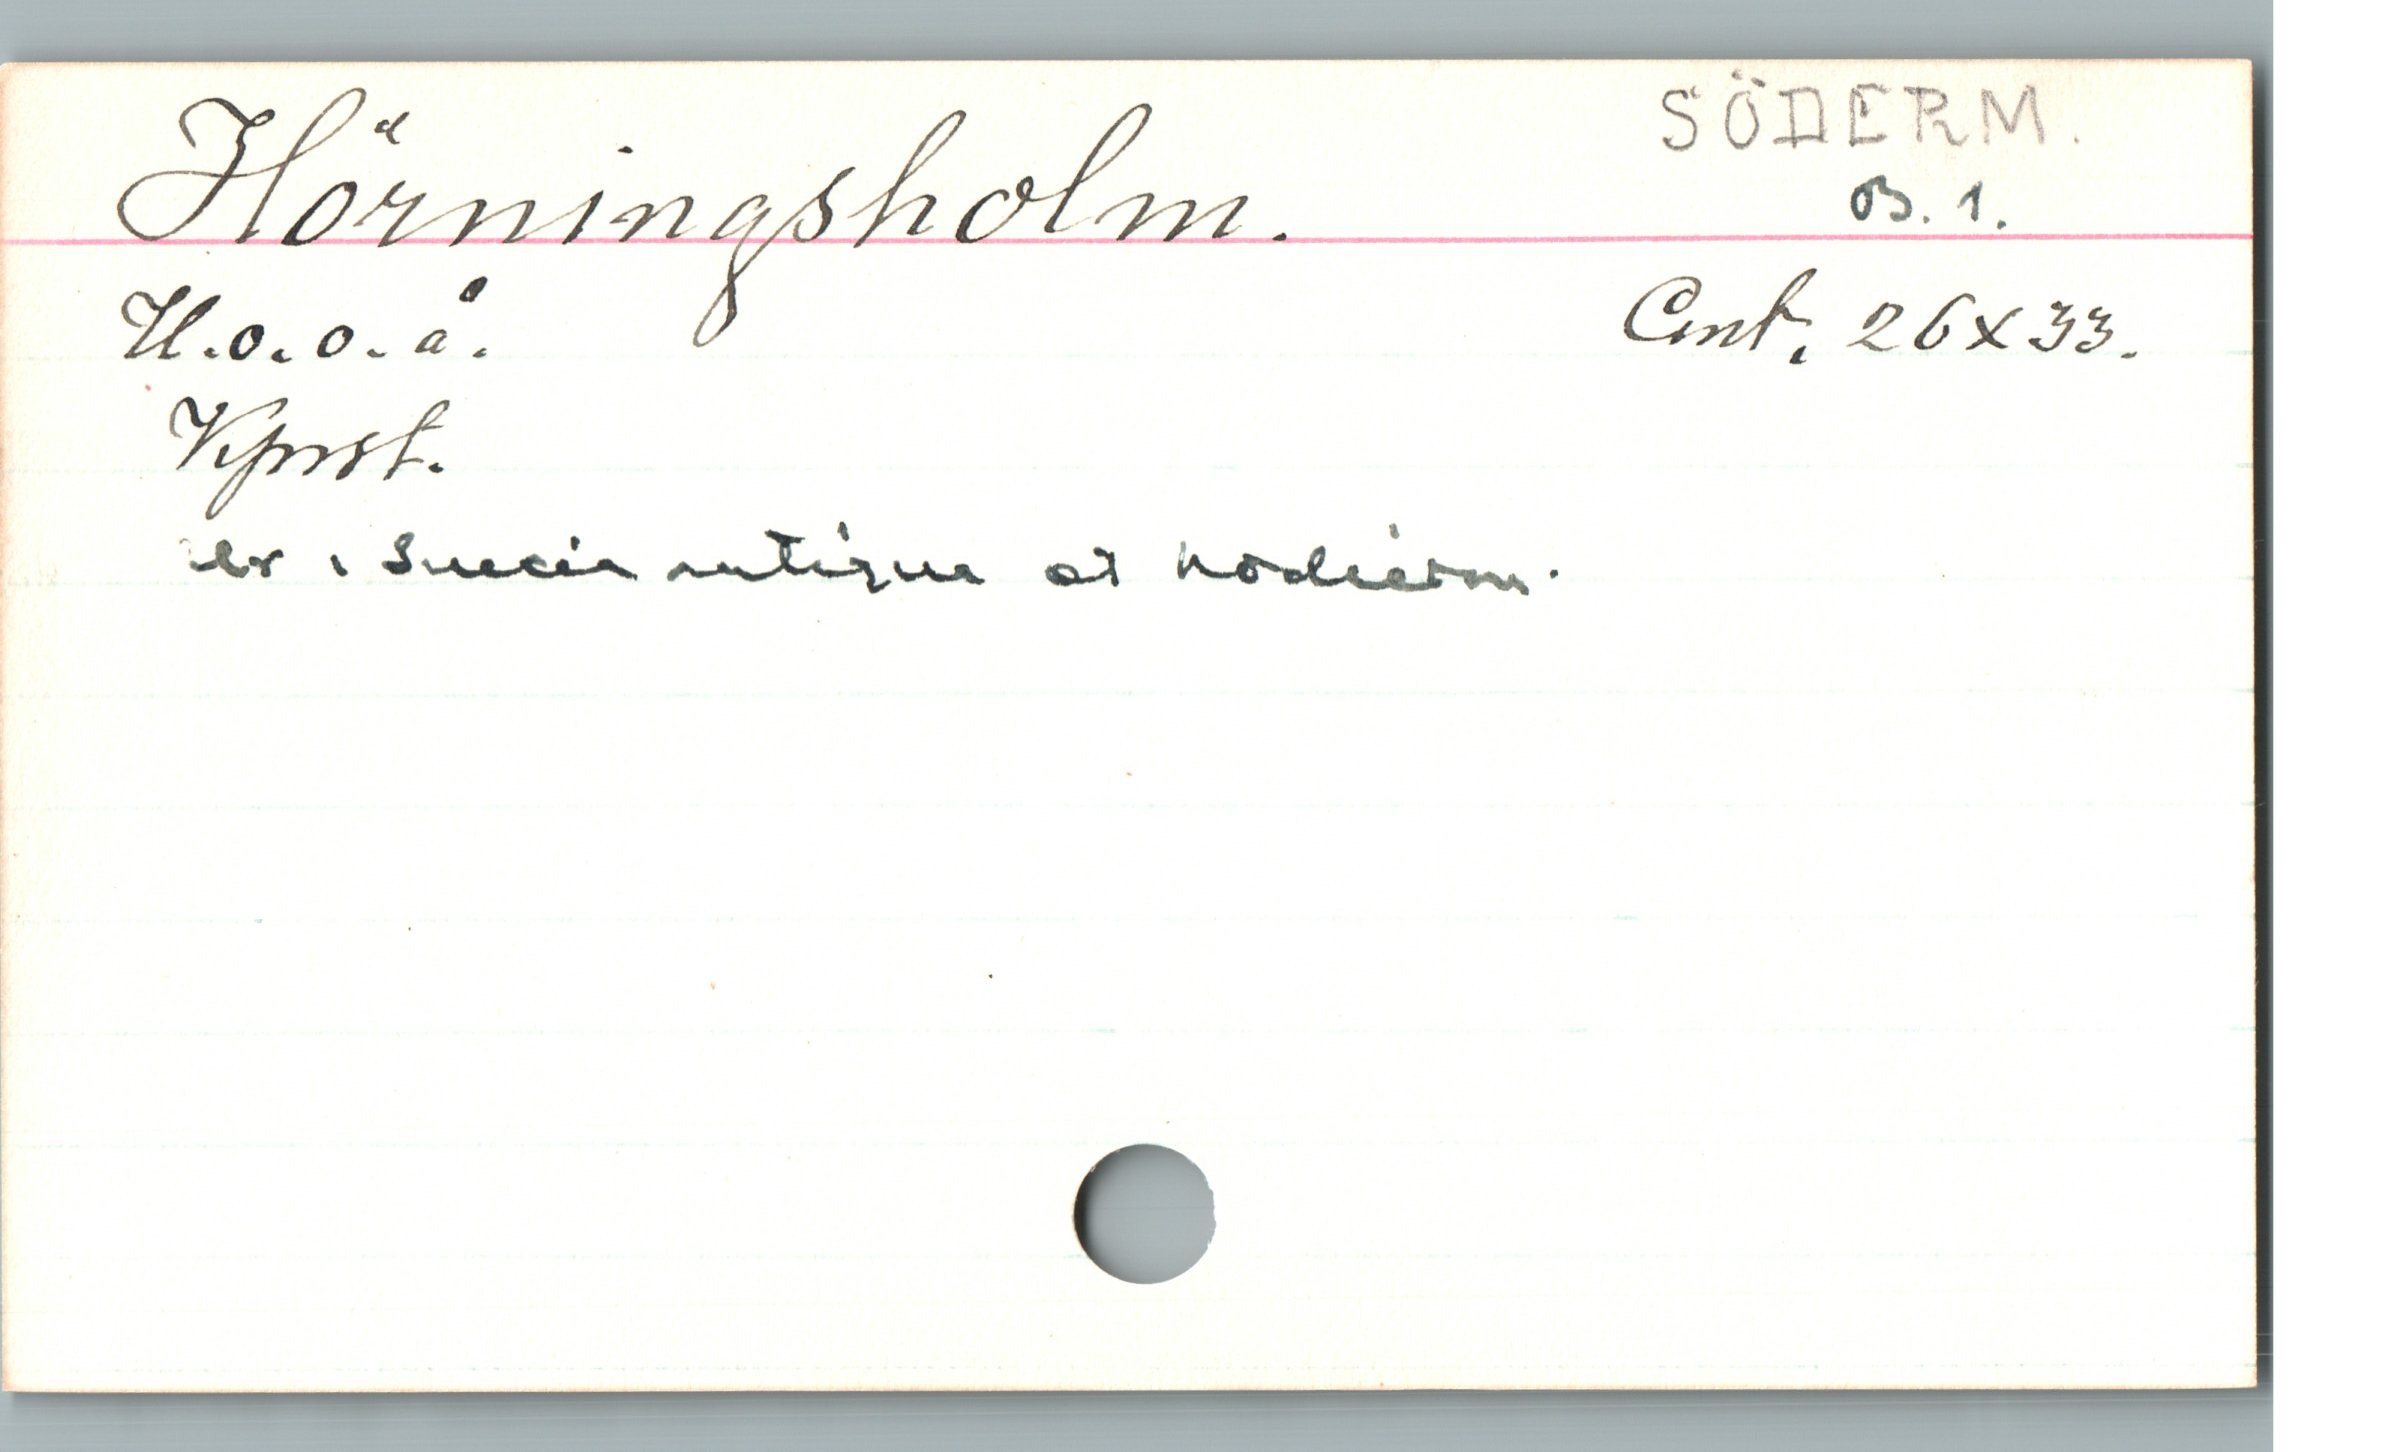 SÖDERM.
Hörningsholm.
B. 1.
U.o.o.å.
Cmt, 26x33.
Kprst.
ur Suecia antiqua et hodierna.